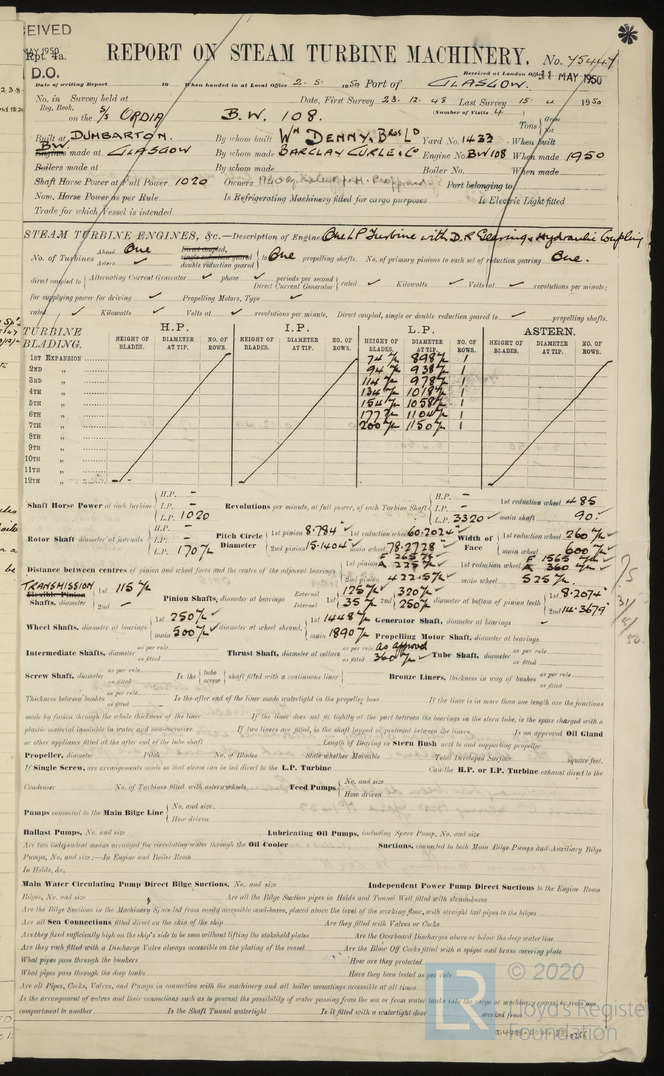 EIVED
MAY 1950
Rpt. 4a.
D.O.
REPORT ON STEAM TURBINE MACHINERY. No. 75447
Received at London Office 11 MAY 1950
Date of writing Report 19 When handed in at Local Office 2.5.1950 Port of GLASGOW.
No. in Survey held at Date, First Survey 23.12.48 Last Survey 15. 1950
Reg. Book. (Number of Visits 4
on the S/S ORDIA B.W. 108. Tons Gross
Built at DUMBARTON. By whom built Wm DENNY, Bros Ld Yard No. 1433 When built
BW. Engines made at GLASGOW By whom made BARCLAY CURLE & Co Engine No. BW108 When made 1950
Boilers made at By whom made Boiler No. When made
Shaft Horse Power at Full Power 1020 Owners Port belonging to
Nom. Horse Power as per Rule Is Refrigerating Machinery fitted for cargo purposes Is Electric Light fitted
Trade for which Vessel is intended
STEAM TURBINE ENGINES, &c.—Description of Engine One LP Turbine with D.R. Gearing & Hydraulic Coupling
No. of Turbines Ahead One Astern Direct coupled, single reduction geared double reduction geared to One propelling shafts. No. of primary pinions to each set of reduction gearing One.
direct coupled to Alternating Current Generator phase periods per second Direct Current Generator rated Kilowatts Volts at revolutions per minute;
for supplying power for driving Propelling Motors, Type
rated Kilowatts Volts at revolutions per minute. Direct coupled, single or double reduction geared to propelling shafts.
TURBINE BLADING. H.P. I.P. L.P. ASTERN.
HEIGHT OF BLADES. DIAMETER AT TIP. NO. OF ROWS. HEIGHT OF BLADES. DIAMETER AT TIP. NO. OF ROWS. HEIGHT OF BLADES. DIAMETER AT TIP. NO. OF ROWS. HEIGHT OF BLADES. DIAMETER AT TIP. NO. OF ROWS.
1ST EXPANSION 74 898 1
2ND 94 938 1
3RD 114 978 1
4TH 134 1018 1
5TH 154 1058 1
6TH 177 1104 1
7TH 200 1150 1
8TH
9TH
10TH
11TH
12TH
Shaft Horse Power at each turbine H.P. – I.P. – L.P. 1020 Revolutions per minute, at full power, of each Turbine Shaft H.P. – I.P. – L.P. 3320 1st reduction wheel 485 main shaft 90
Rotor Shaft diameter at journals H.P. – I.P. – L.P. 170 Pitch Circle Diameter 1st pinion 8.784" 2nd pinion 15.1404" 1st reduction wheel 60.2024 main wheel 78.2728 Width of Face 1st reduction wheel 260 main wheel 600
Distance between centres of pinion and wheel faces and the centre of the adjacent bearings 1st pinion F 265 A 225 2nd pinion 422.5 1st reduction wheel F 1565 A 360 main wheel 525
TRANSMISSION Flexible Pinion Shafts, diameter 1st 115 2nd Pinion Shafts, diameter at bearings External 1st 125 2nd 320 Internal 1st 35 2nd 250 diameter at bottom of pinion teeth 1st 8.2074 2nd 14.3679
Wheel Shafts, diameter at bearings 1st 250 main 300 diameter at wheel shroud, 1st 1448 main 1890 Generator Shaft, diameter at bearings Propelling Motor Shaft, diameter at bearings
Intermediate Shafts, diameter as per rule as fitted Thrust Shaft, diameter at collars as per rule as approved as fitted 360 Tube Shaft, diameter as per rule as fitted
Screw Shaft, diameter as per rule as fitted Is the tube screw shaft fitted with a continuous liner Bronze Liners, thickness in way of bushes as per rule as fitted
Thickness between bushes as per rule as fitted Is the after end of the liner made watertight in the propeller boss If the liner is in more than one length are the junctions
made by fusion through the whole thickness of the liner If the liner does not fit tightly at the part between the bearings in the stern tube, is the space charged with a
plastic material insoluble in water and non-corrosive If two liners are fitted, is the shaft lapped or protected between the liners Is an approved Oil Gland
or other appliance fitted at the after end of the tube shaft Length of Bearing in Stern Bush next to and supporting propeller
Propeller, diameter Pitch No. of Blades State whether Moveable Total Developed Surface square feet.
If Single Screw, are arrangements made so that steam can be led direct to the L.P. Turbine Can the H.P. or I.P. Turbine exhaust direct to the
Condenser No. of Turbines fitted with astern wheels Feed Pumps No. and size How driven
Pumps connected to the Main Bilge Line No. and size How driven
Ballast Pumps, No. and size Lubricating Oil Pumps, including Spare Pump, No. and size
Are two independent means arranged for circulating water through the Oil Cooler Suctions, connected to both Main Bilge Pumps and Auxiliary Bilge
Pumps, No. and size:—In Engine and Boiler Room
In Holds, &c.
Main Water Circulating Pump Direct Bilge Suctions, No. and size Independent Power Pump Direct Suctions to the Engine Room
Bilges, No. and size Are all the Bilge Suction pipes in Holds and Tunnel Well fitted with strumboxes
Are the Bilge Suctions in the Machinery Space led from easily accessible mud-boxes, placed above the level of the working floor, with straight tail pipes to the bilges
Are all Sea Connections fitted direct on the skin of the ship Are they fitted with Valves or Cocks
Are they fixed sufficiently high on the ship's side to be seen without lifting the stokehold plates Are the Overboard Discharges above or below the deep water line
Are they each fitted with a Discharge Valve always accessible on the plating of the vessel Are the Blow Off Cocks fitted with a spigot and brass covering plate
What pipes pass through the bunkers How are they protected
What pipes pass through the deep tanks Have they been tested as per rule
Are all Pipes, Cocks, Valves, and Pumps in connection with the machinery and all boiler mountings accessible at all times
Is the arrangement of valves and their connections such as to prevent the possibility of water passing from the sea or from water tanks into the cargo or machinery spaces, or from one
compartment to another Is the Shaft Tunnel watertight Is it fitted with a watertight door worked from
© 2020
LR
Lloyd's Register
Foundation